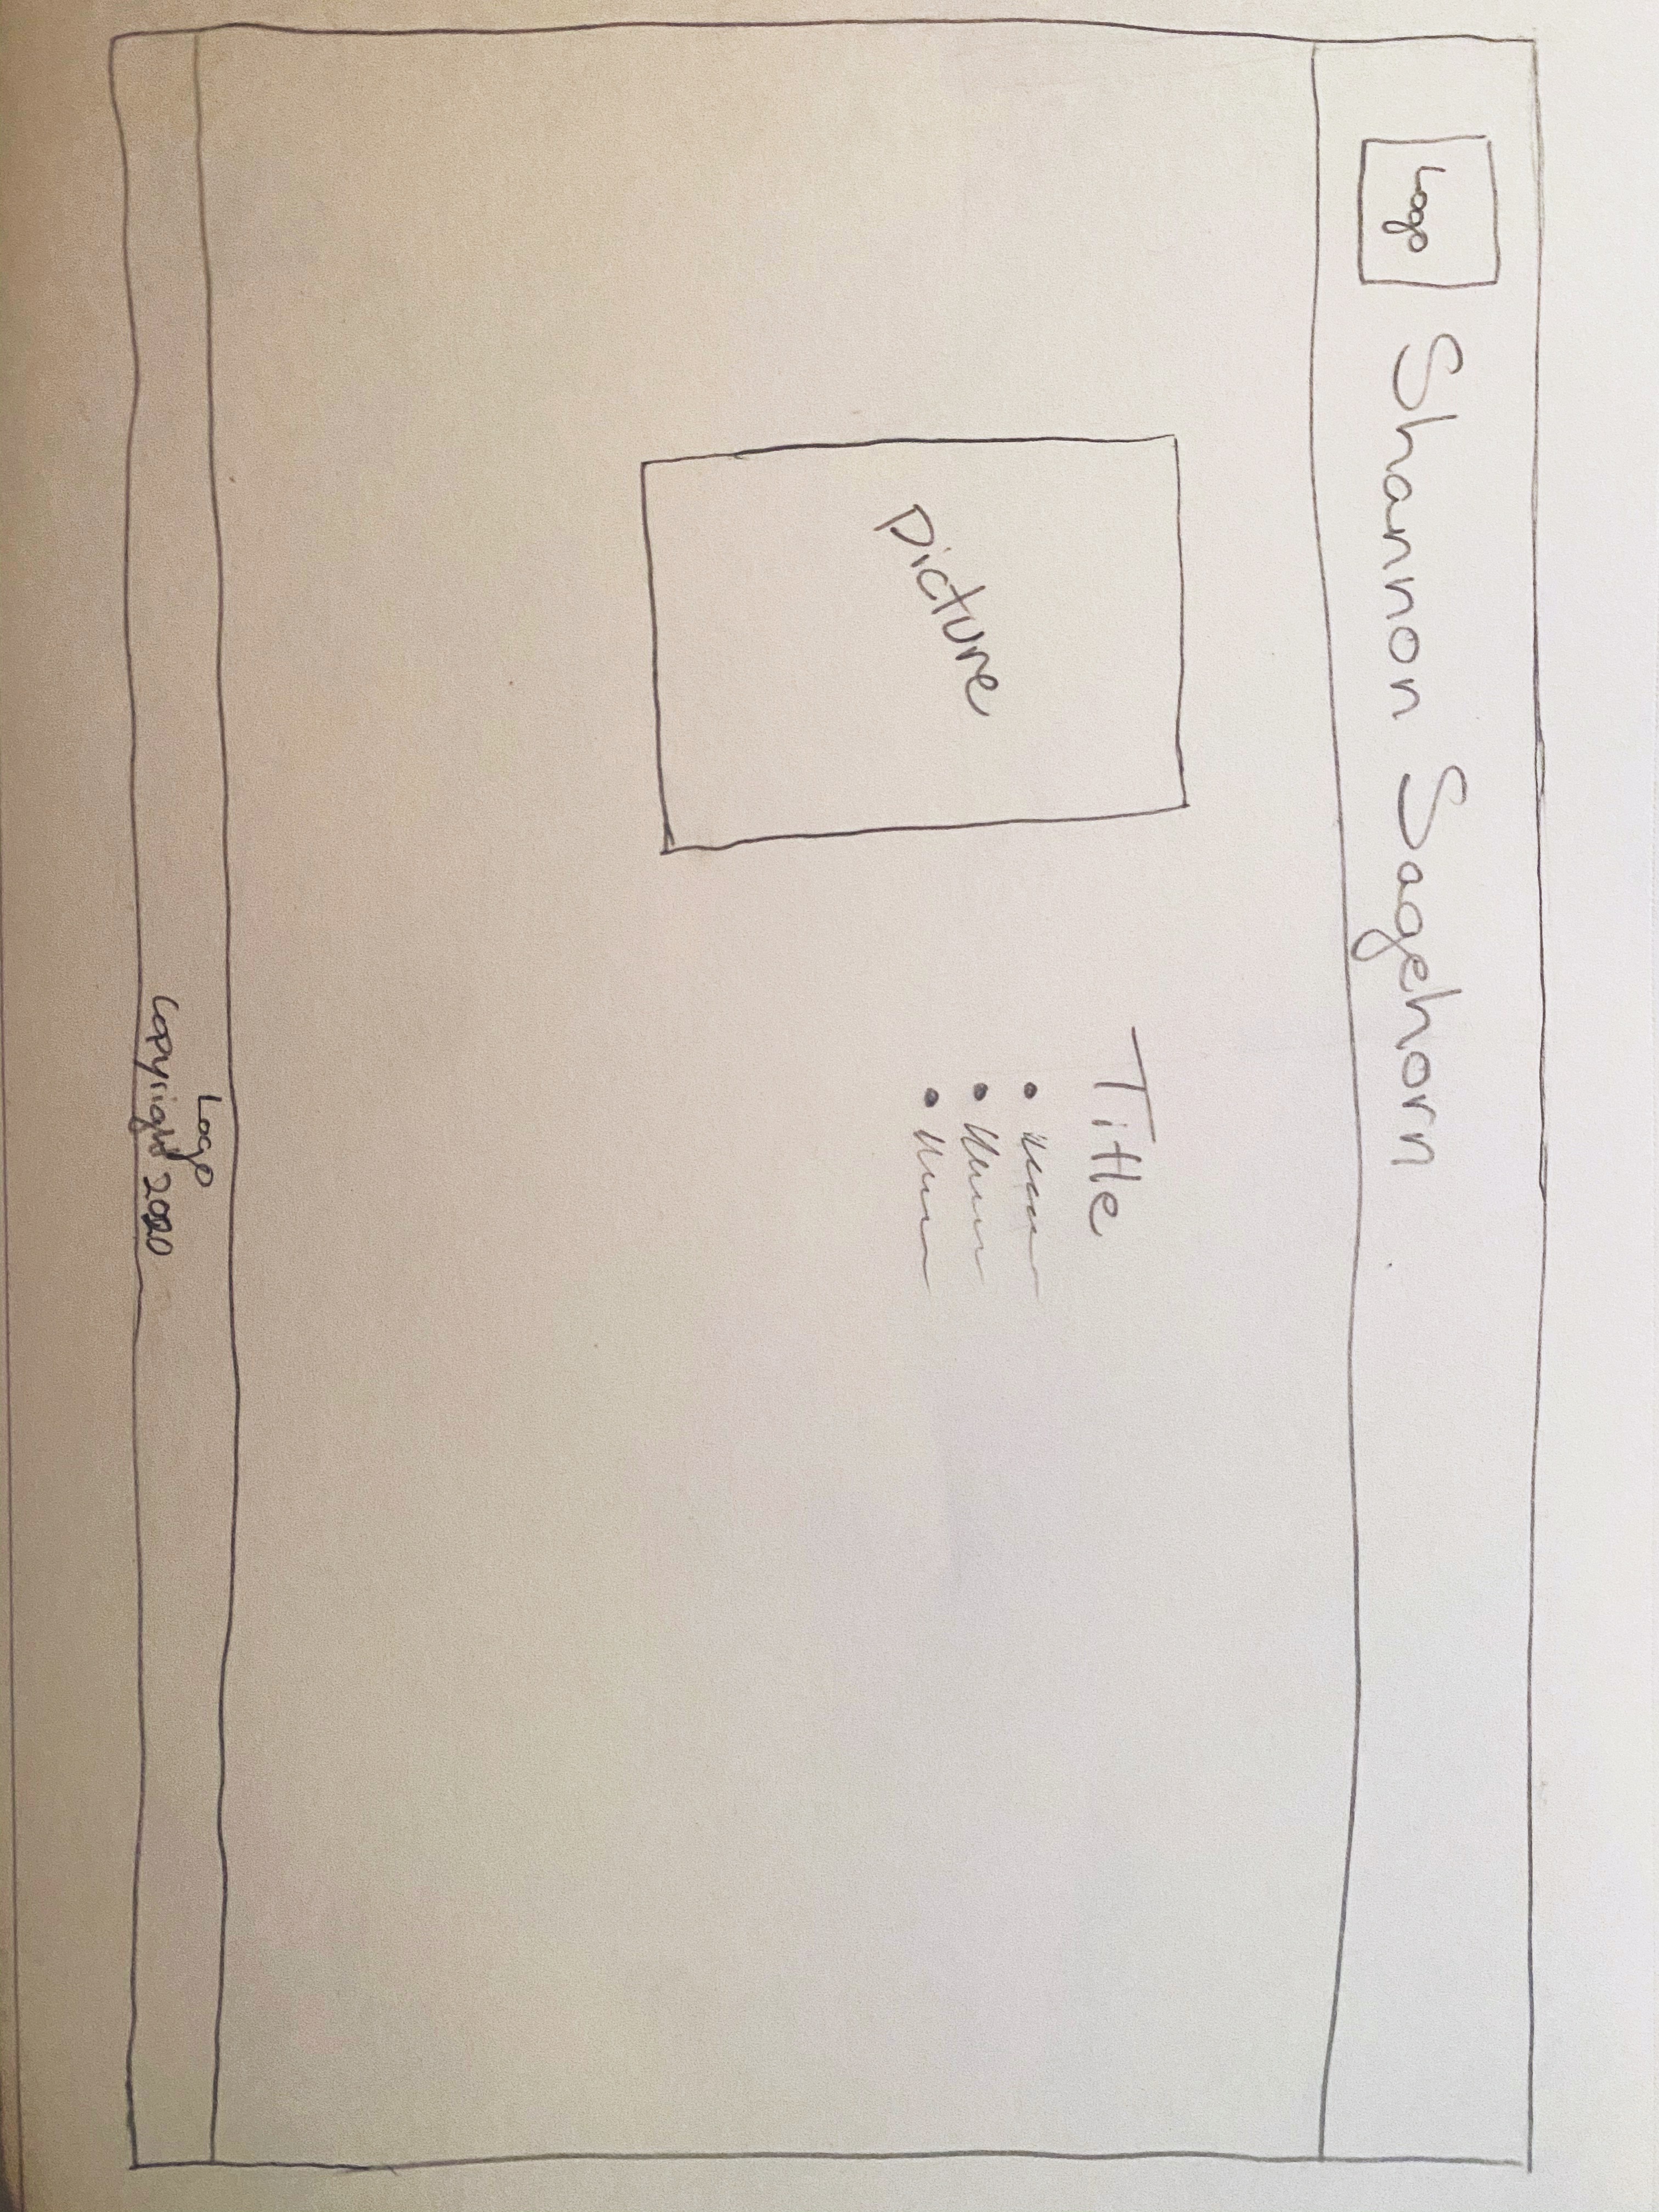 Logo
Shannon Sagehorn
Picture
Title
Logo
Copyright 2020